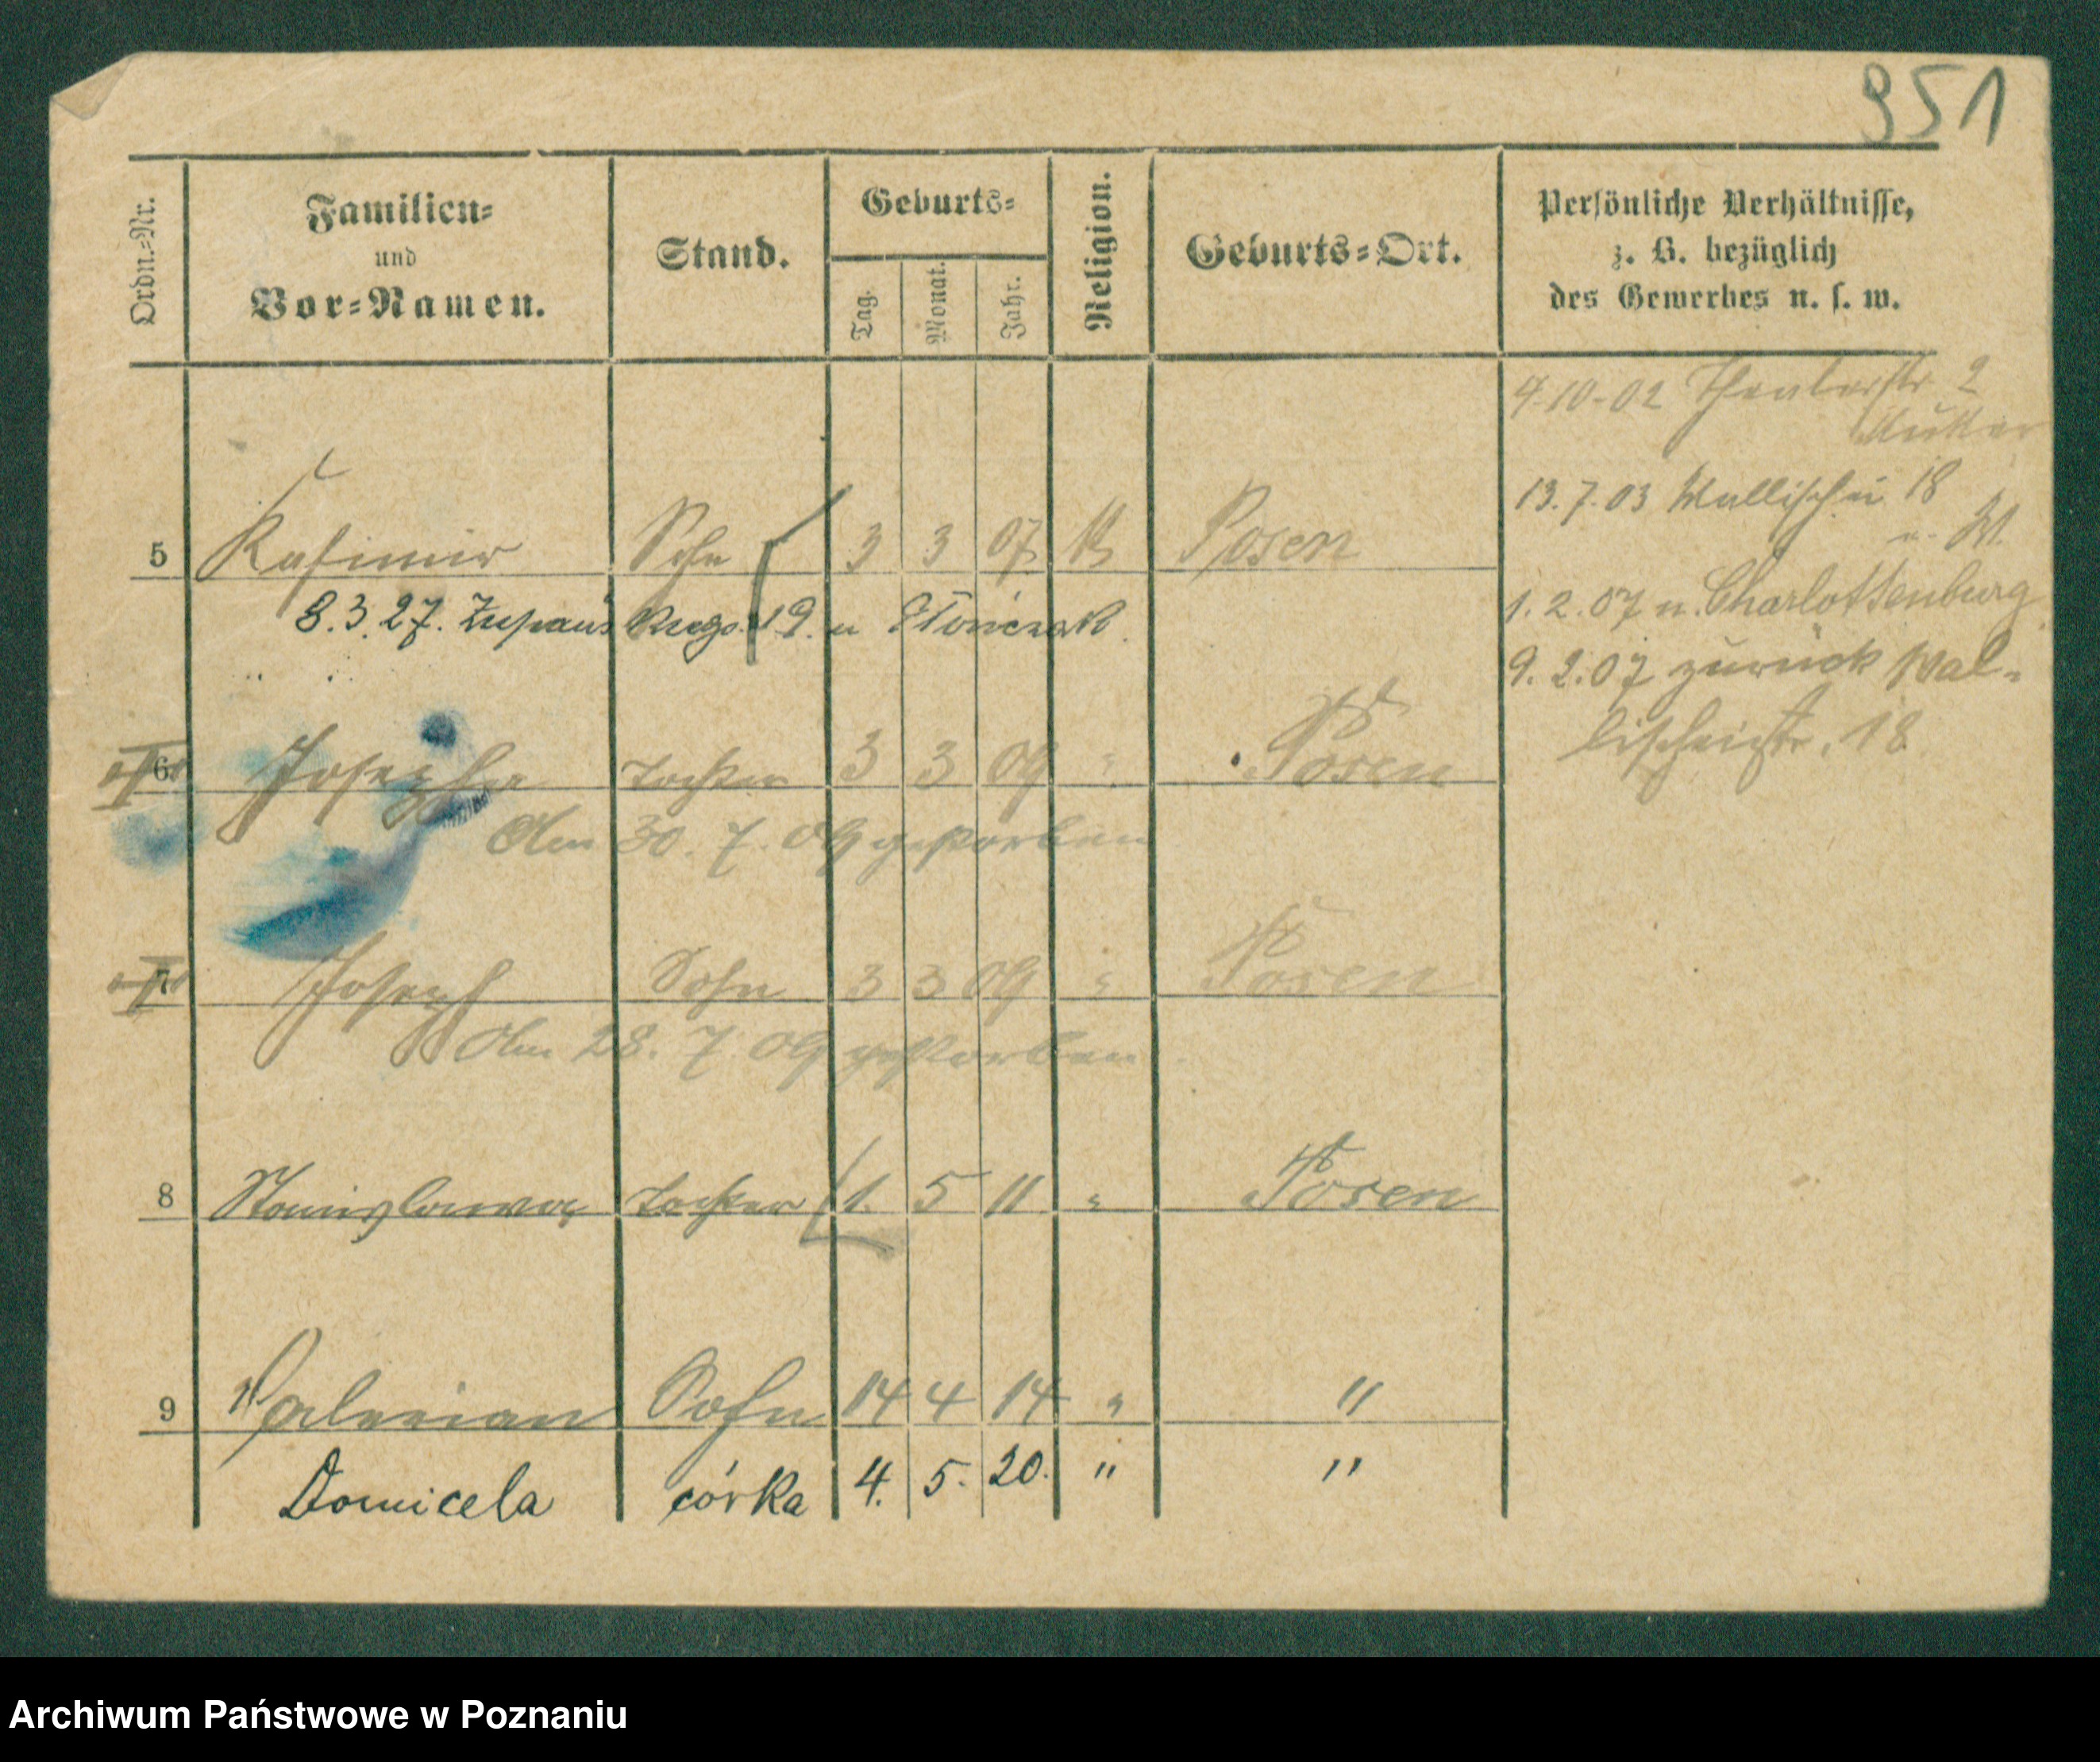 951
Ordn.-Nr.
Familien-
und
Vor-Namen.
Stand.
Geburts-
Tag.
Monat.
Jahr.
Religion.
Geburts-Ort.
Persönliche Verhältnisse,
z. B. bezüglich
des Gewerbes u. s. w.
4-10-02 Theaterstr 2
Mutter
13.7.03 Wallischei 18
5 Kasimir Sohn 3 3 07 Posen
8.3.27. 19. u
1.2.07 n. Charlottenburg
9.2.07 zurück Wal-
lischeistr. 18
6 Josepha Tochter 3 3 09 " Posen
Am 30. 7. 09 gestorben
7 Joseph Sohn 3 3 09 " Posen
Am 28. 7. 09 gestorben.
8 Stanislawa Tochter 1. 5 11 " Posen
9 Valerian Sohn 14 4 14 " "
Domicela córka 4. 5. 20. " "
Archiwum Państwowe w Poznaniu